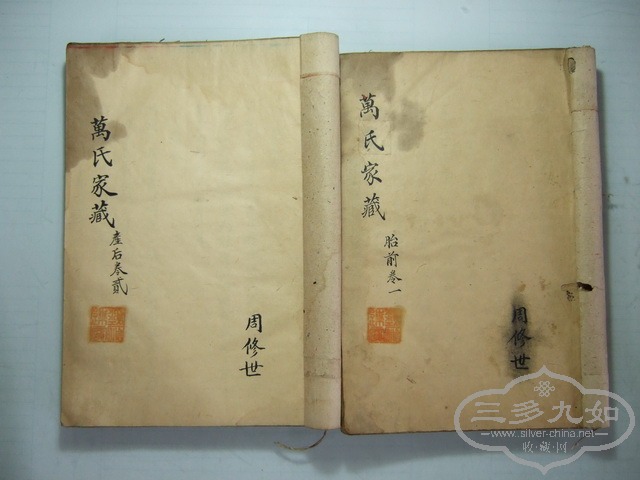 萬氏家藏
胎前卷一
周修世
萬氏家藏
產后卷貳
周修世
三多九如
www.silver-china.net
收藏网